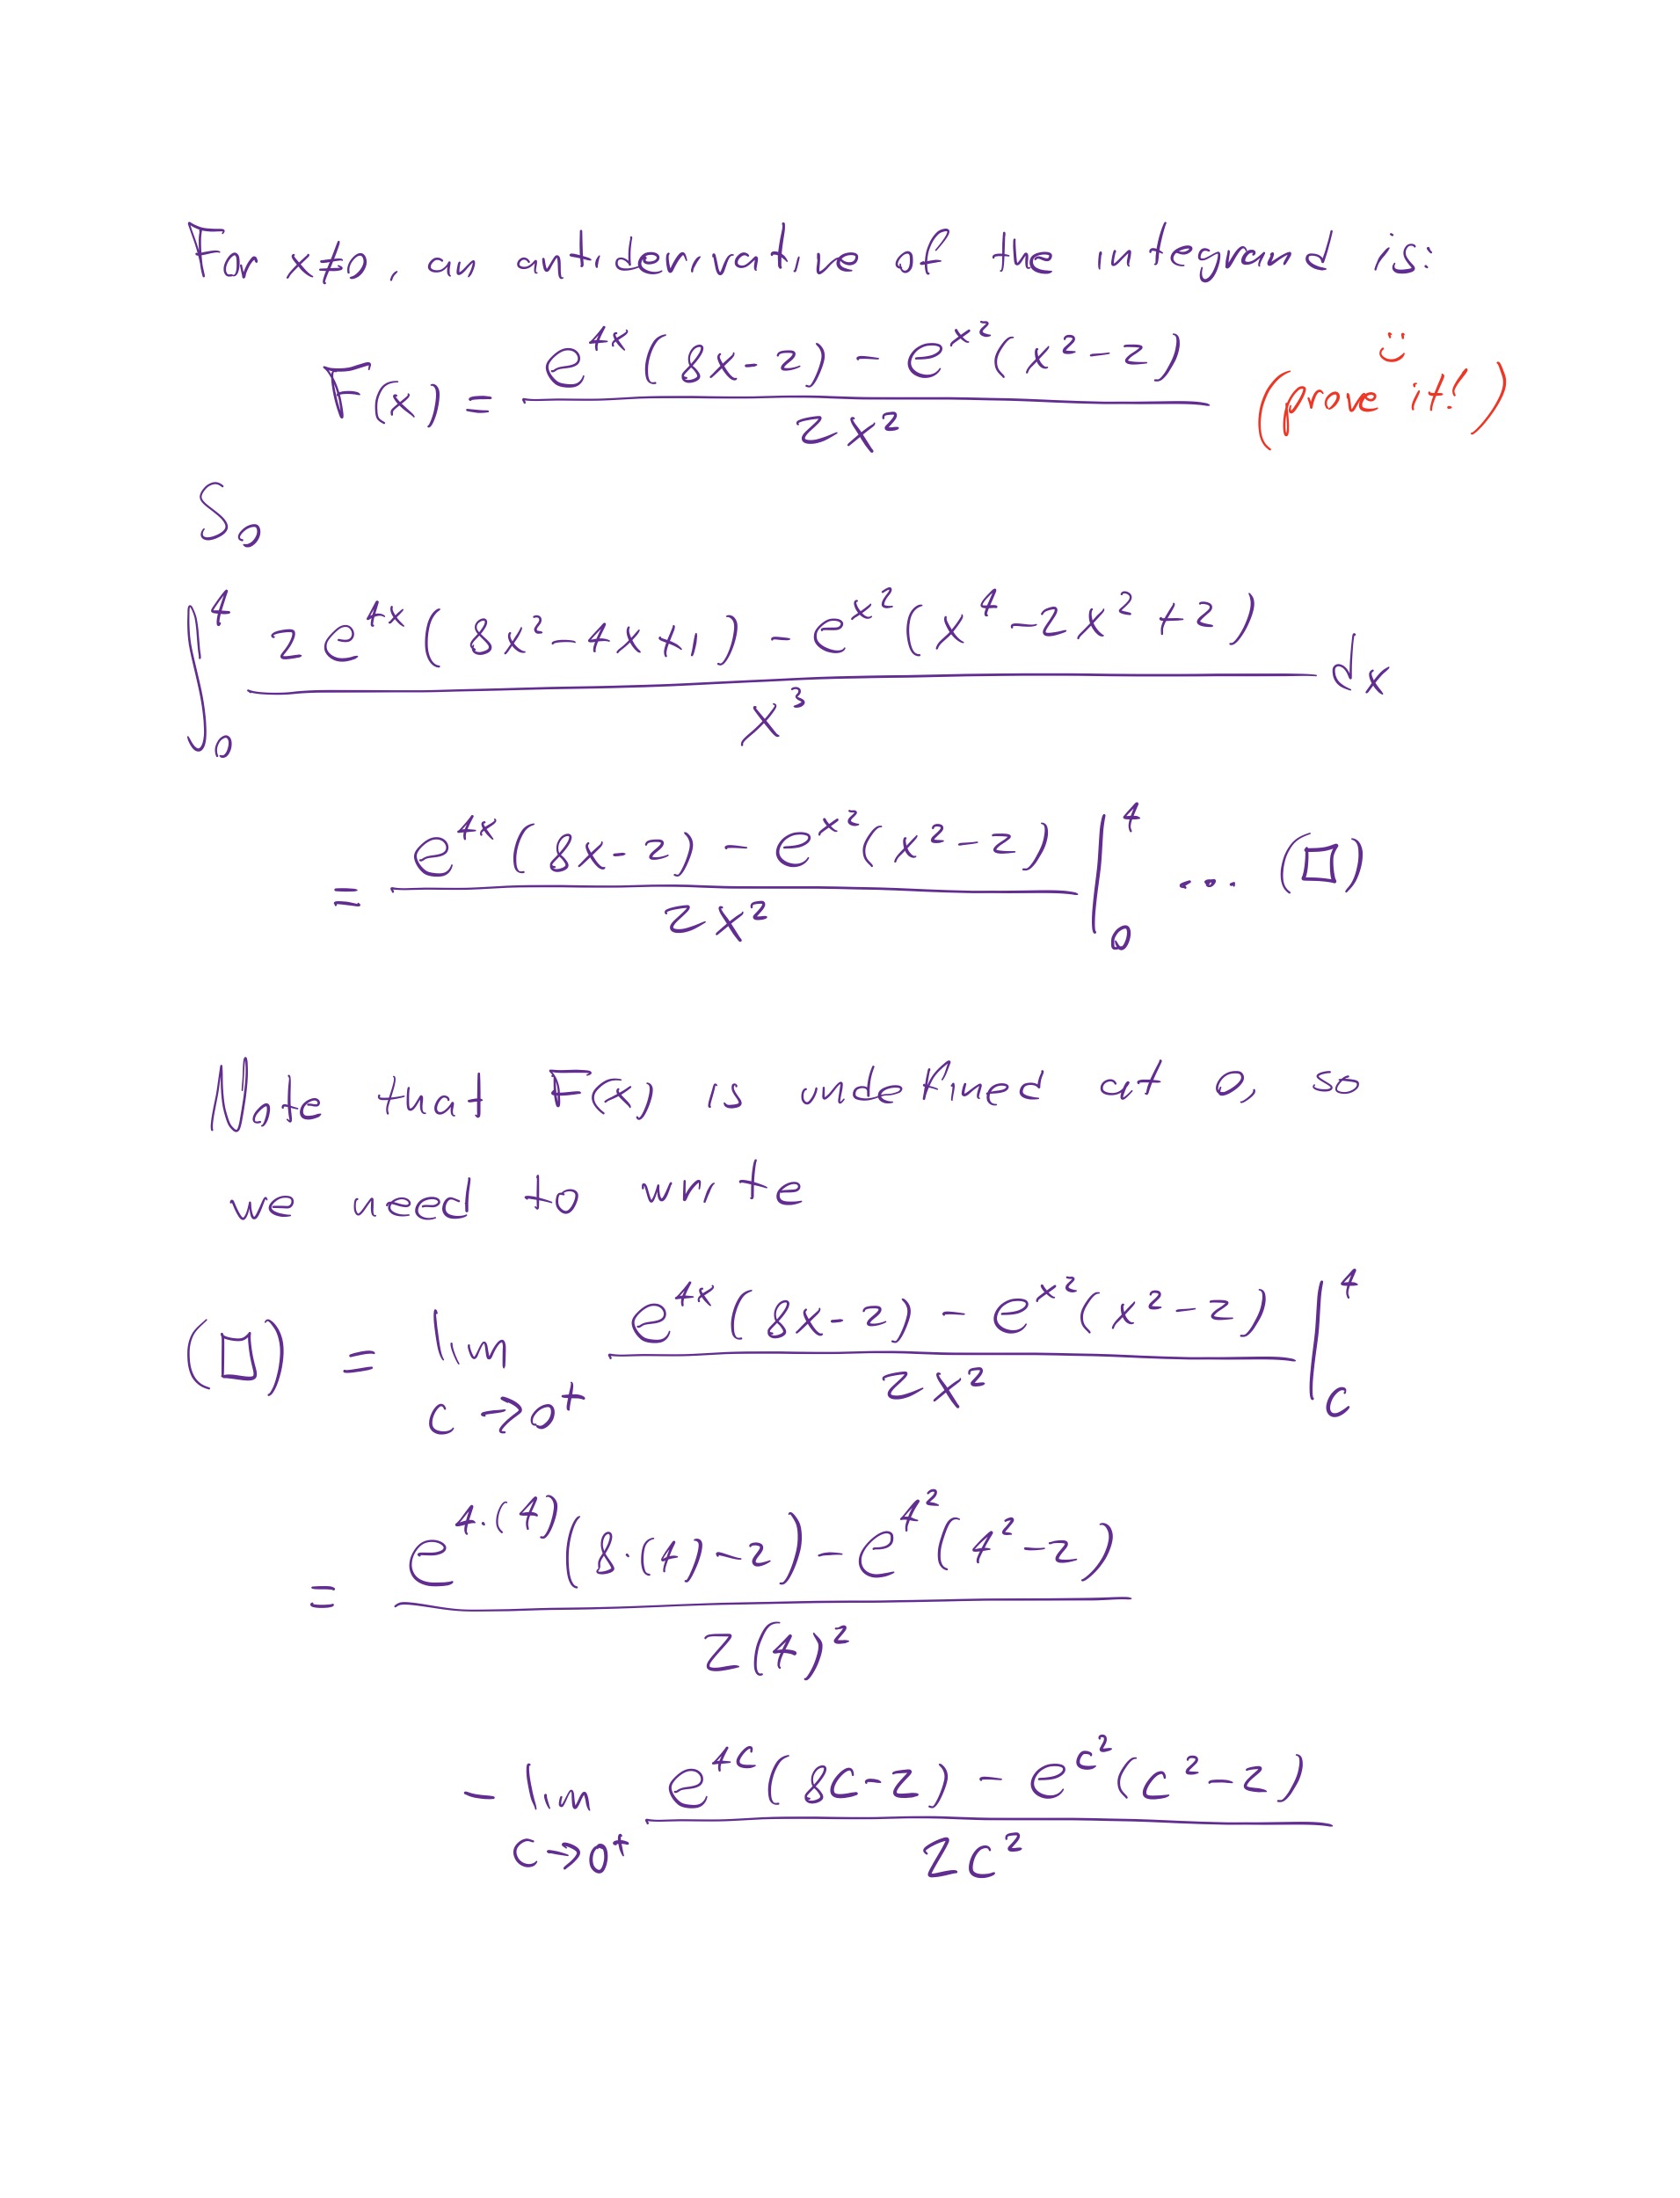 For x≠0, an antiderivative of the integrand is:
F(x) = \frac{e^{4x}(8x-2) - e^{x^2}(x^2-2)}{2x^2} (prove it! ¨⌣)
So
\int_0^4 \frac{2e^{4x}(8x^2-4x+1) - e^{x^2}(x^4-2x^2+2)}{x^3} dx
= \frac{e^{4x}(8x-2) - e^{x^2}(x^2-2)}{2x^2} \Big|_0^4 ... (□)
Note that F(x) is undefined at 0, so
we need to write
(□) = \lim_{c→0^+} \frac{e^{4x}(8x-2) - e^{x^2}(x^2-2)}{2x^2} \Big|_c^4
= \frac{e^{4·(4)}(8·(4)-2) - e^{4^2}(4^2-2)}{2(4)^2}
- \lim_{c→0^+} \frac{e^{4c}(8c-2) - e^{c^2}(c^2-2)}{2c^2}